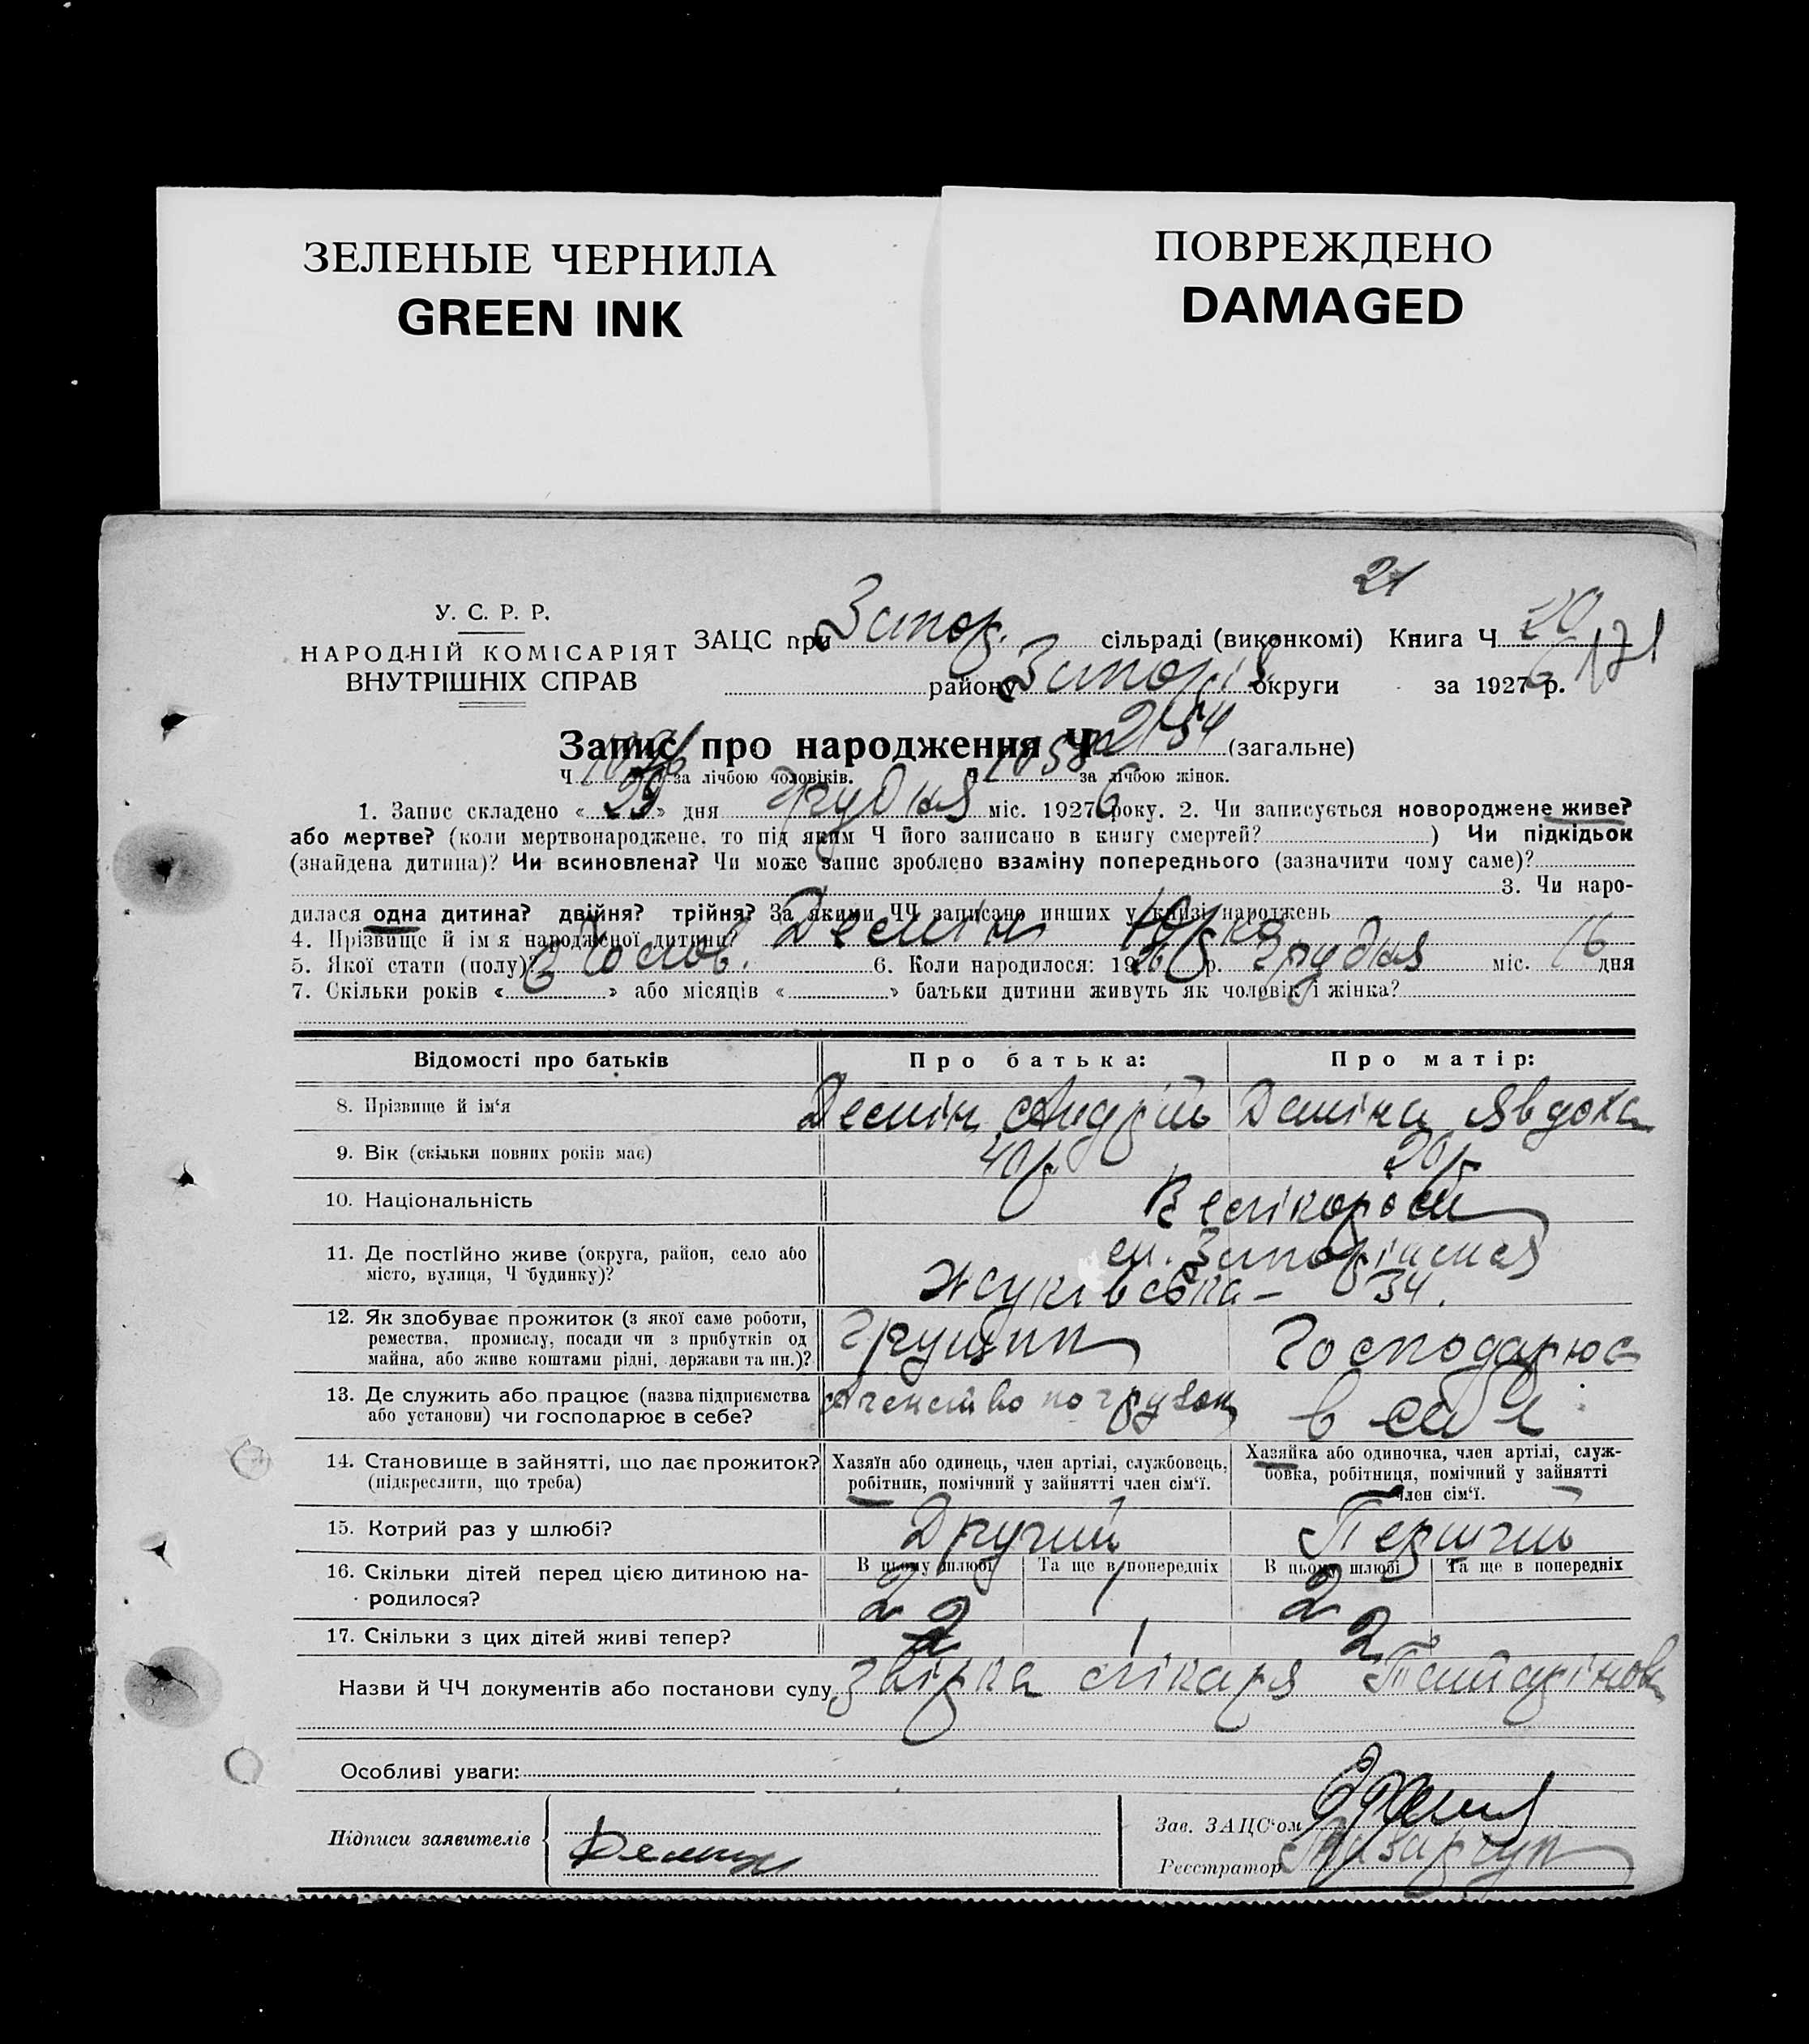 ЗЕЛЕНЫЕ ЧЕРНИЛА
GREEN INK
ПОВРЕЖДЕНО
DAMAGED
21
У. С. Р. Р.
НАРОДНІЙ КОМІСАРІЯТ
ВНУТРІШНІХ СПРАВ
ЗАЦС при Запор. сільраді (виконкомі) Книга Ч 20
171
району Запоріз округи за 1927 6 р.
Запис про народження Ч 2154 (загальне)
Ч за лічбою чоловіків. Ч 1058 за лічбою жінок.
1. Запис складено « 29 » дня Грудня міс. 1927 6 року. 2. Чи записується новороджене живе?
або мертве? (коли мертвонароджене, то під яким Ч його записано в книгу смертей? ) Чи підкідьок
(знайдена дитина)? Чи всиновлена? Чи може запис зроблено взаміну попереднього (зазначити чому саме)?
3. Чи наро-
дилася одна дитина? двійня? трійня? За якими ЧЧ записано инших у книзі народжень
4. Прізвище й ім я народженої дитини? Демін Юрко
5. Якої стати (полу)? Чолов. 6. Коли народилося: 1926 р. Грудня міс. 16 дня
7. Скільки років « » або місяців « » батьки дитини живуть як чоловік і жінка?
Відомості про батьків Про батька: Про матір:
8. Прізвище й ім‘я Демін Андрій Даміна Явдоха
9. Вік (скільки повних років має) 40 р 26 р
10. Національність Велікорос
11. Де постійно живе (округа, район, село або
місто, вулиця, Ч будинку)?
м. Запоріжжя
Жуківська – 34.
12. Як здобуває прожиток (з якої саме роботи,
ремества, промислу, посади чи з прибутків од
майна, або живе коштами рідні, держави та ин.)?
Грущик Господарює
13. Де служить або працює (назва підприємства
або установи) чи господарює в себе?
Агенство по грузок в себе
14. Становище в зайнятті, що дає прожиток?
(підкреслити, що треба)
Хазяїн або одинець, член артілі, службовець,
робітник, помічний у зайнятті член сім‘ї.
Хазяйка або одиночка, член артілі, служ-
бовка, робітниця, помічний у зайнятті
член сім‘ї.
15. Котрий раз у шлюбі? Другий Перший
В цьому шлюбі Та ще в попередніх В цьому шлюбі Та ще в попередніх
16. Скільки дітей перед цією дитиною на-
родилося?
2 1 2
17. Скільки з цих дітей живі тепер? 2 1 2
Назви й ЧЧ документів або постанови суду звірка лікаря
Особливі уваги:
Підписи заявителів Демин
Зав. ЗАЦС‘ом
Реєстратор